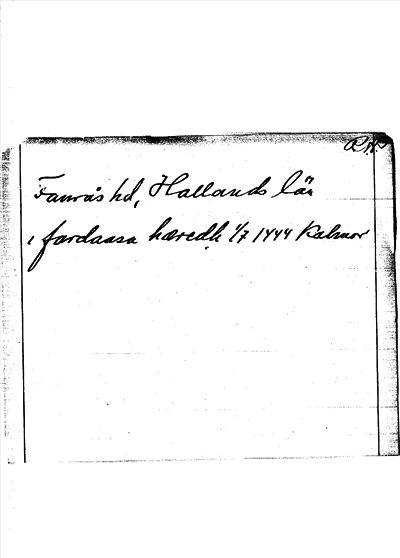 RAP
Faurås hd, Hallands län
i fardaasa hæredh 1/7 1444 Kalmar